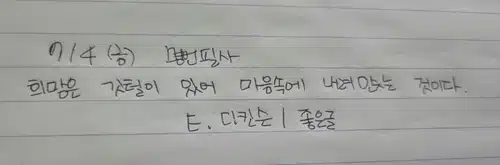 7/4 (금) 1일1번필사
희망은 깃털이 있어 마음속에 내려앉는 것이다.
E. 디킨슨 | 좋은글